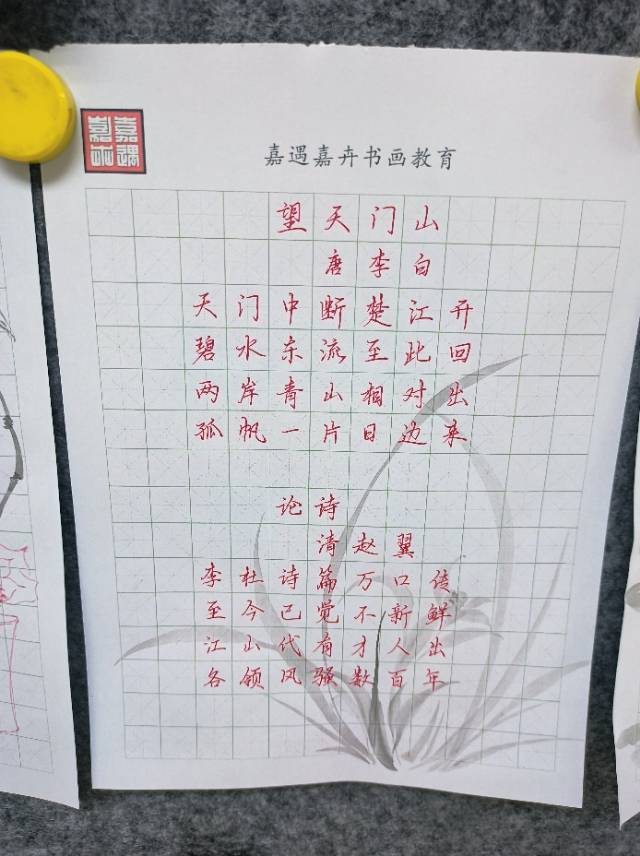 嘉遇嘉卉
嘉遇嘉卉书画教育
望天门山
唐李白
天门中断楚江开
碧水东流至此回
两岸青山相对出
孤帆一片日边来
论诗
清赵翼
李杜诗篇万口传
至今已觉不新鲜
江山代有才人出
各领风骚数百年